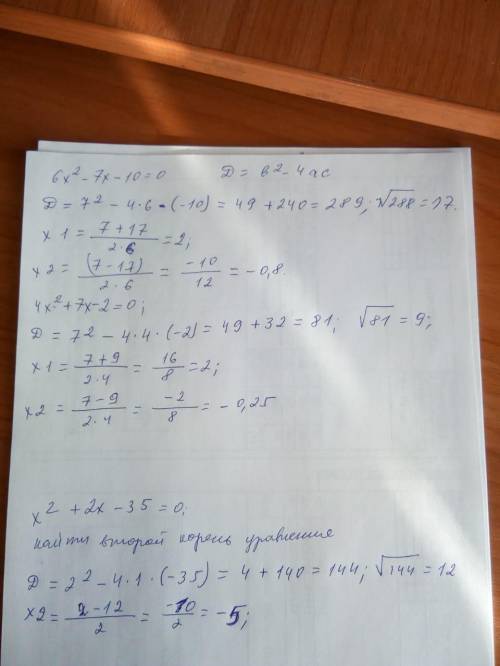 6x² - 7x - 10 = 0 D = в² - 4ас
D = 7² - 4·6·(-10) = 49 + 240 = 289; √288 = 17.
x1 = (7 + 17)/(2·6) = 2;
x2 = (7 - 17)/(2·6) = -10/12 = -0,8.
4x² + 7x - 2 = 0;
D = 7² - 4·4·(-2) = 49 + 32 = 81; √81 = 9;
x1 = (7 + 9)/(2·4) = 16/8 = 2;
x2 = (7 - 9)/(2·4) = -2/8 = -0,25
x² + 2x - 35 = 0;
найти второй корень уравнения
D = 2² - 4·1·(-35) = 4 + 140 = 144; √144 = 12
x2 = (2 - 12)/2 = -10/2 = -5;